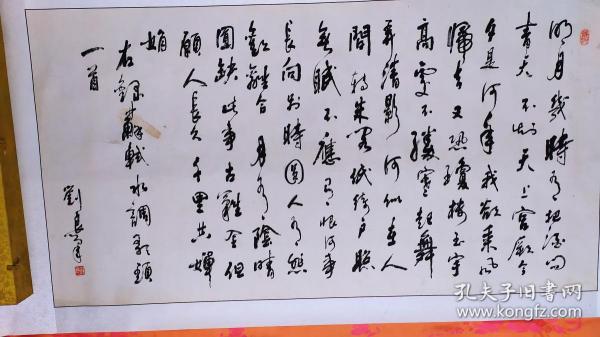 明月幾時有把酒问
青天不知天上宫阙今
夕是何年我欲乘风
歸去又恐瓊楼玉宇
高處不勝寒起舞
弄清影何似在人
間轉朱閣低綺户照
無眠不應有恨何事
長向别時圓人有悲
歡離合月有陰晴
圓缺此事古難全但
願人長久千里共嬋
娟
右錄蘇軾水調歌頭
一首
劉
孔夫子旧书网